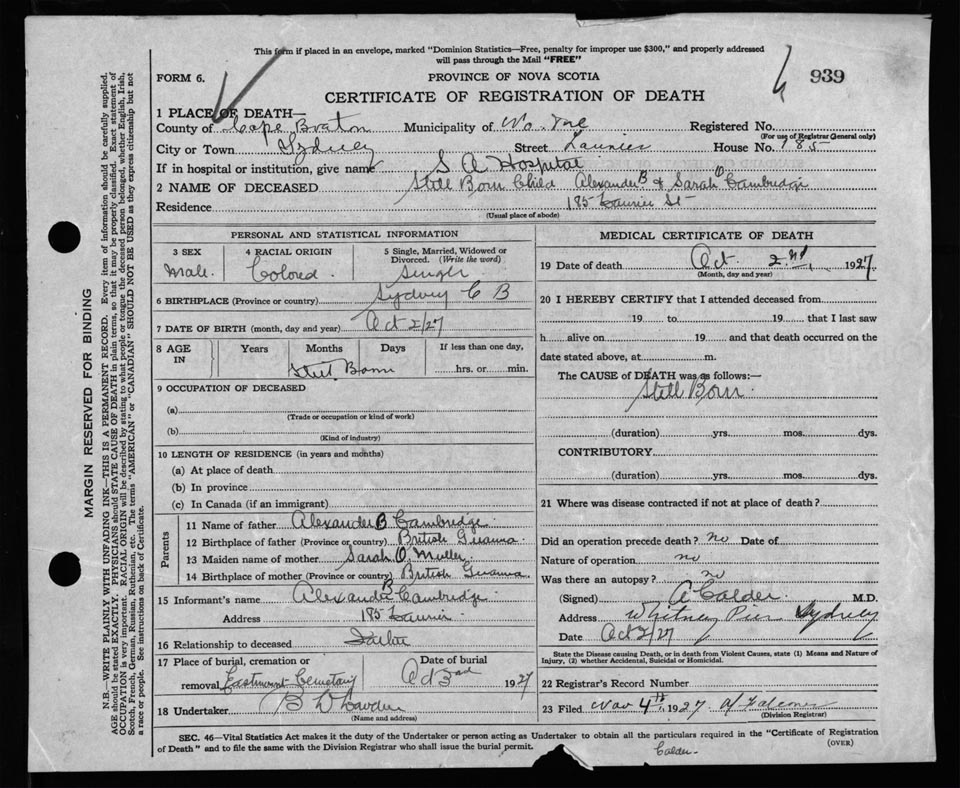 This form if placed in an envelope, marked "Dominion Statistics—Free, penalty for improper use $300," and properly addressed
will pass through the Mail "FREE"
FORM 6.
PROVINCE OF NOVA SCOTIA
939
CERTIFICATE OF REGISTRATION OF DEATH
1 PLACE OF DEATH—
County of Cape Breton Municipality of No. Registered No.
(For use of Registrar General only)
City or Town Sydney Street Laurier House No. 185
If in hospital or institution, give name S A Hospital
2 NAME OF DECEASED Still Born Child Alexander B & Sarah O Cambridge
Residence 185 Laurier St
(Usual place of abode)
PERSONAL AND STATISTICAL INFORMATION
3 SEX 4 RACIAL ORIGIN 5 Single, Married, Widowed or Divorced. (Write the word)
Male. Colored. Single
6 BIRTHPLACE (Province or country) Sydney C B
7 DATE OF BIRTH (month, day and year) Oct 2/27
8 AGE IN Years Months Days If less than one day,
Still Born hrs. or min.
9 OCCUPATION OF DECEASED
(a)
(Trade or occupation or kind of work)
(b)
(Kind of industry)
10 LENGTH OF RESIDENCE (in years and months)
(a) At place of death
(b) In province
(c) In Canada (if an immigrant)
Parents
11 Name of father Alexander B Cambridge
12 Birthplace of father (Province or country) British Guiana
13 Maiden name of mother Sarah O.
14 Birthplace of mother (Province or country) British Guiana
15 Informant's name Alexander B Cambridge
Address 185 Laurier
16 Relationship to deceased Father
17 Place of burial, cremation or removal Eastmount Cemetary Date of burial Oct 3rd 1927
18 Undertaker B W
(Name and address)
MEDICAL CERTIFICATE OF DEATH
19 Date of death Oct 2nd, 1927
(Month, day and year)
20 I HEREBY CERTIFY that I attended deceased from
19 to 19 that I last saw
h alive on 19 and that death occurred on the
date stated above, at m.
The CAUSE of DEATH was as follows:—
Still Born
(duration) yrs. mos. dys.
CONTRIBUTORY
(duration) yrs. mos. dys.
21 Where was disease contracted if not at place of death?
Did an operation precede death? no Date of
Nature of operation no
Was there an autopsy? no
(Signed) A Calder M.D.
Address Whitney Pier Sydney
Date Oct 2/27
State the Disease causing Death, or in death from Violent Causes, state (1) Means and Nature of
Injury, (2) whether Accidental, Suicidal or Homicidal.
22 Registrar's Record Number
23 Filed Nov 4th, 1927
(Division Registrar)
SEC. 46—Vital Statistics Act makes it the duty of the Undertaker or person acting as Undertaker to obtain all the particulars required in the "Certificate of Registration
of Death" and to file the same with the Division Registrar who shall issue the burial permit.
(OVER)
Calder.
MARGIN RESERVED FOR BINDING
N.B.—WRITE PLAINLY WITH UNFADING INK—THIS IS A PERMANENT RECORD. Every item of information should be carefully supplied.
AGE should be stated EXACTLY. PHYSICIANS should STATE CAUSE OF DEATH in plain terms, so that it may be properly classified. Exact statement of
OCCUPATION is very important. RACIAL ORIGIN will be described by stating to what people or tongue the deceased person belonged, whether English, Irish,
Scotch, French, German, Russian, Ruthenian, etc. The terms "AMERICAN" or "CANADIAN" SHOULD NOT BE USED as they express citizenship but not
a race or people. See instructions on back of Certificate.